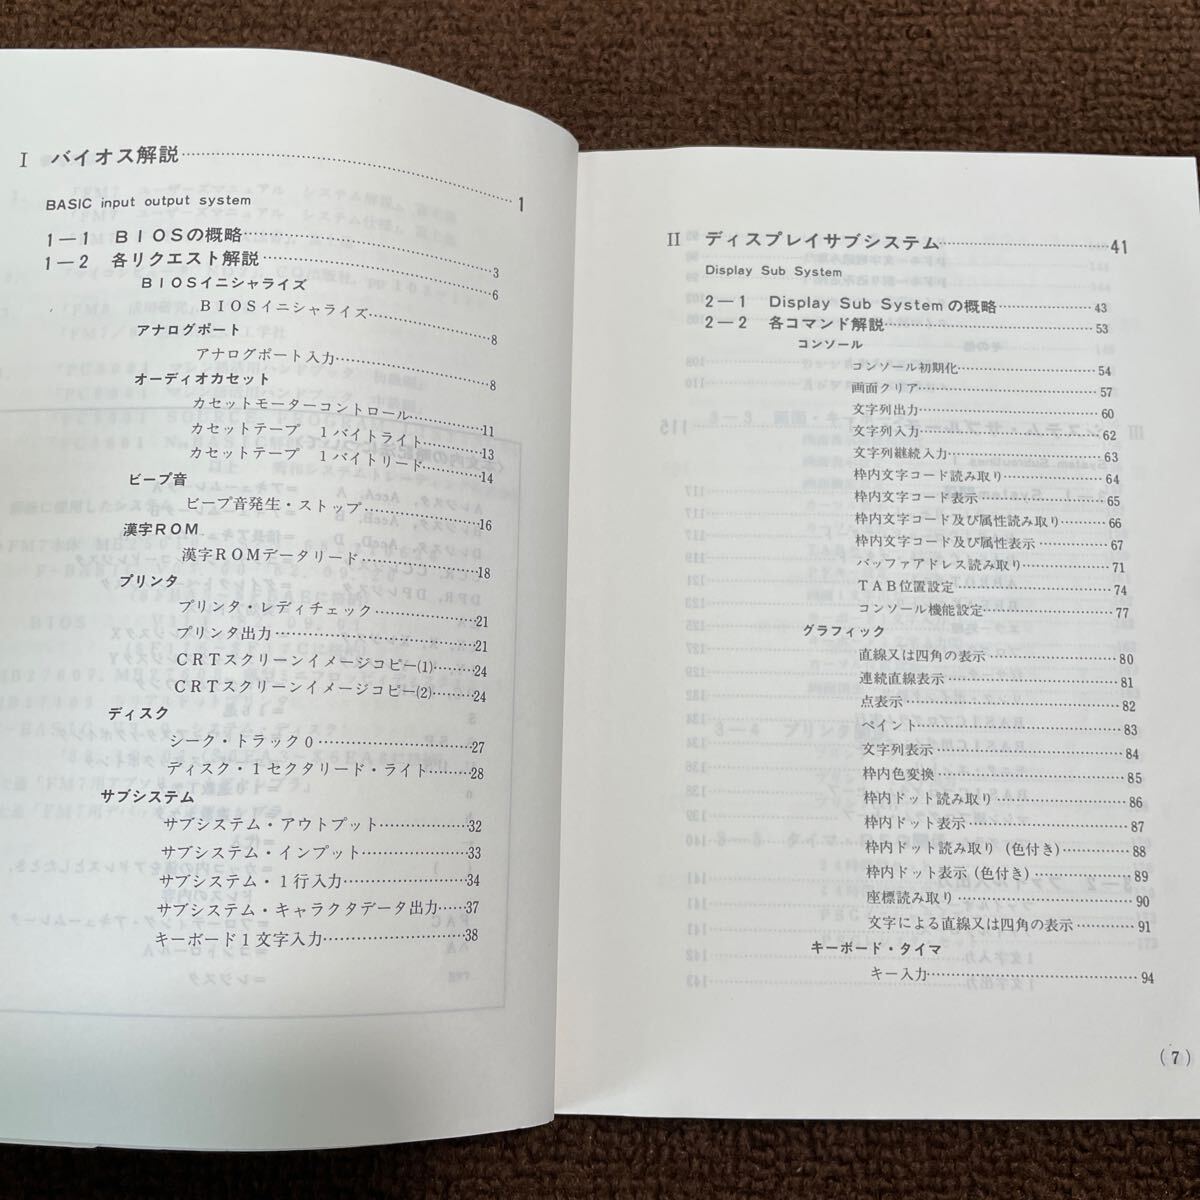 I バイオス解説……………………1
BASIC input output system
1－1 BIOSの概略……………………3
1－2 各リクエスト解説……………………6
BIOSイニシャライズ
BIOSイニシャライズ……………………8
アナログポート
アナログポート入力……………………8
オーディオカセット
カセットモーターコントロール……………………11
カセットテープ 1バイトライト……………………13
カセットテープ 1バイトリード……………………14
ビープ音
ビープ音発生・ストップ……………………16
漢字ROM
漢字ROMデータリード……………………18
プリンタ
プリンタ・レディチェック……………………21
プリンタ出力……………………21
CRTスクリーンイメージコピー(1)……………………24
CRTスクリーンイメージコピー(2)……………………24
ディスク
シーク・トラック0……………………27
ディスク・1セクタリード・ライト……………………28
サブシステム
サブシステム・アウトプット……………………32
サブシステム・インプット……………………33
サブシステム・1行入力……………………34
サブシステム・キャラクタデータ出力……………………37
キーボード1文字入力……………………38
II ディスプレイサブシステム……………………41
Display Sub System
2－1 Display Sub Systemの概略……………………43
2－2 各コマンド解説……………………53
コンソール
コンソール初期化……………………54
画面クリア……………………57
文字列出力……………………60
文字列入力……………………62
文字列継続入力……………………63
枠内文字コード読み取り……………………64
枠内文字コード表示……………………65
枠内文字コード及び属性読み取り……………………66
枠内文字コード及び属性表示……………………67
バッファアドレス読み取り……………………71
TAB位置設定……………………74
コンソール機能設定……………………77
グラフィック
直線又は四角の表示……………………80
連続直線表示……………………81
点表示……………………82
ペイント……………………83
文字列表示……………………84
枠内色変換……………………85
枠内ドット読み取り……………………86
枠内ドット表示……………………87
枠内ドット読み取り(色付き)……………………88
枠内ドット表示(色付き)……………………89
座標読み取り……………………90
文字による直線又は四角の表示……………………91
キーボード・タイマ
キー入力……………………94
(7)